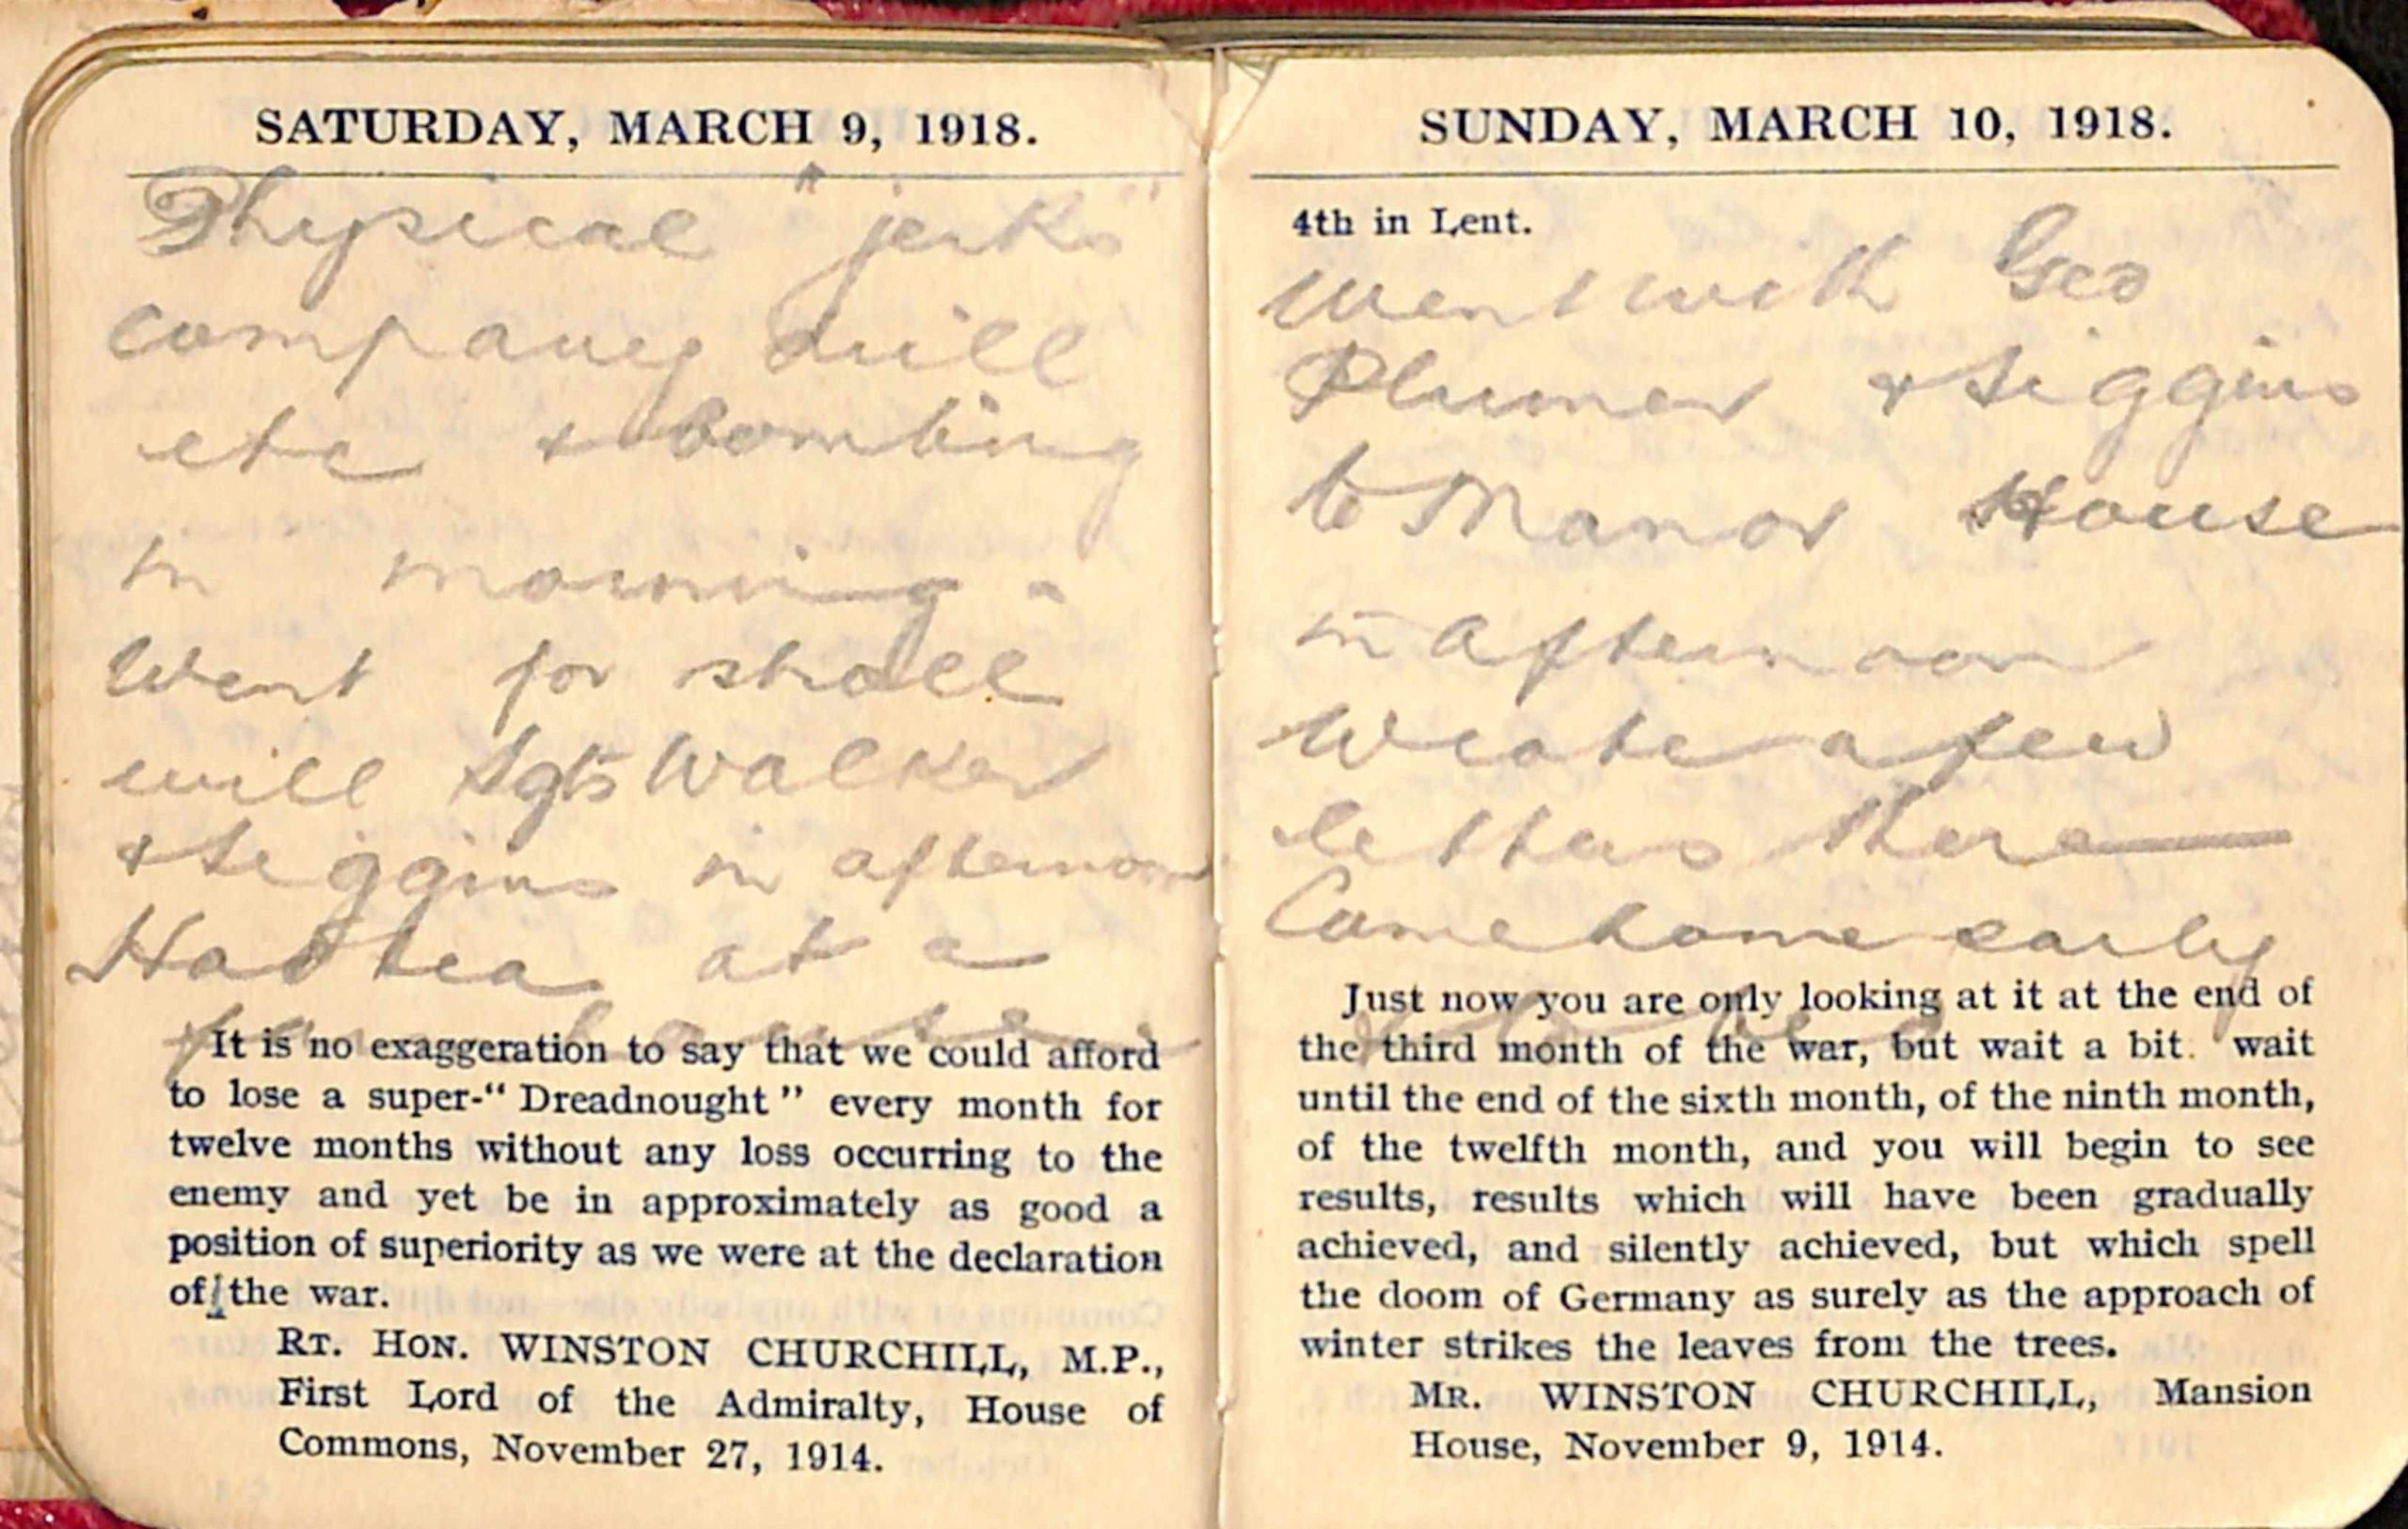 SATURDAY, MARCH 9, 1918.
Physical "jerks"
company drill
etc & bombing
in morning -
Went for stroll
will Sgts Walker
& Siggins in afternoon
Had tea at a
farm house
It is no exaggeration to say that we could afford
to lose a super-“ Dreadnought ” every month for
twelve months without any loss occurring to the
enemy and yet be in approximately as good a
position of superiority as we were at the declaration
of the war.
RT. HON. WINSTON CHURCHILL, M.P.,
First Lord of the Admiralty, House of
Commons, November 27, 1914.
SUNDAY, MARCH 10, 1918.
4th in Lent.
Went with Geo
Plumer & Siggins
to Manor House
in afternoon
Wrote a few
letters there
Came home early
& to bed
Just now you are only looking at it at the end of
the third month of the war, but wait a bit. wait
until the end of the sixth month, of the ninth month,
of the twelfth month, and you will begin to see
results, results which will have been gradually
achieved, and silently achieved, but which spell
the doom of Germany as surely as the approach of
winter strikes the leaves from the trees.
MR. WINSTON CHURCHILL, Mansion
House, November 9, 1914.